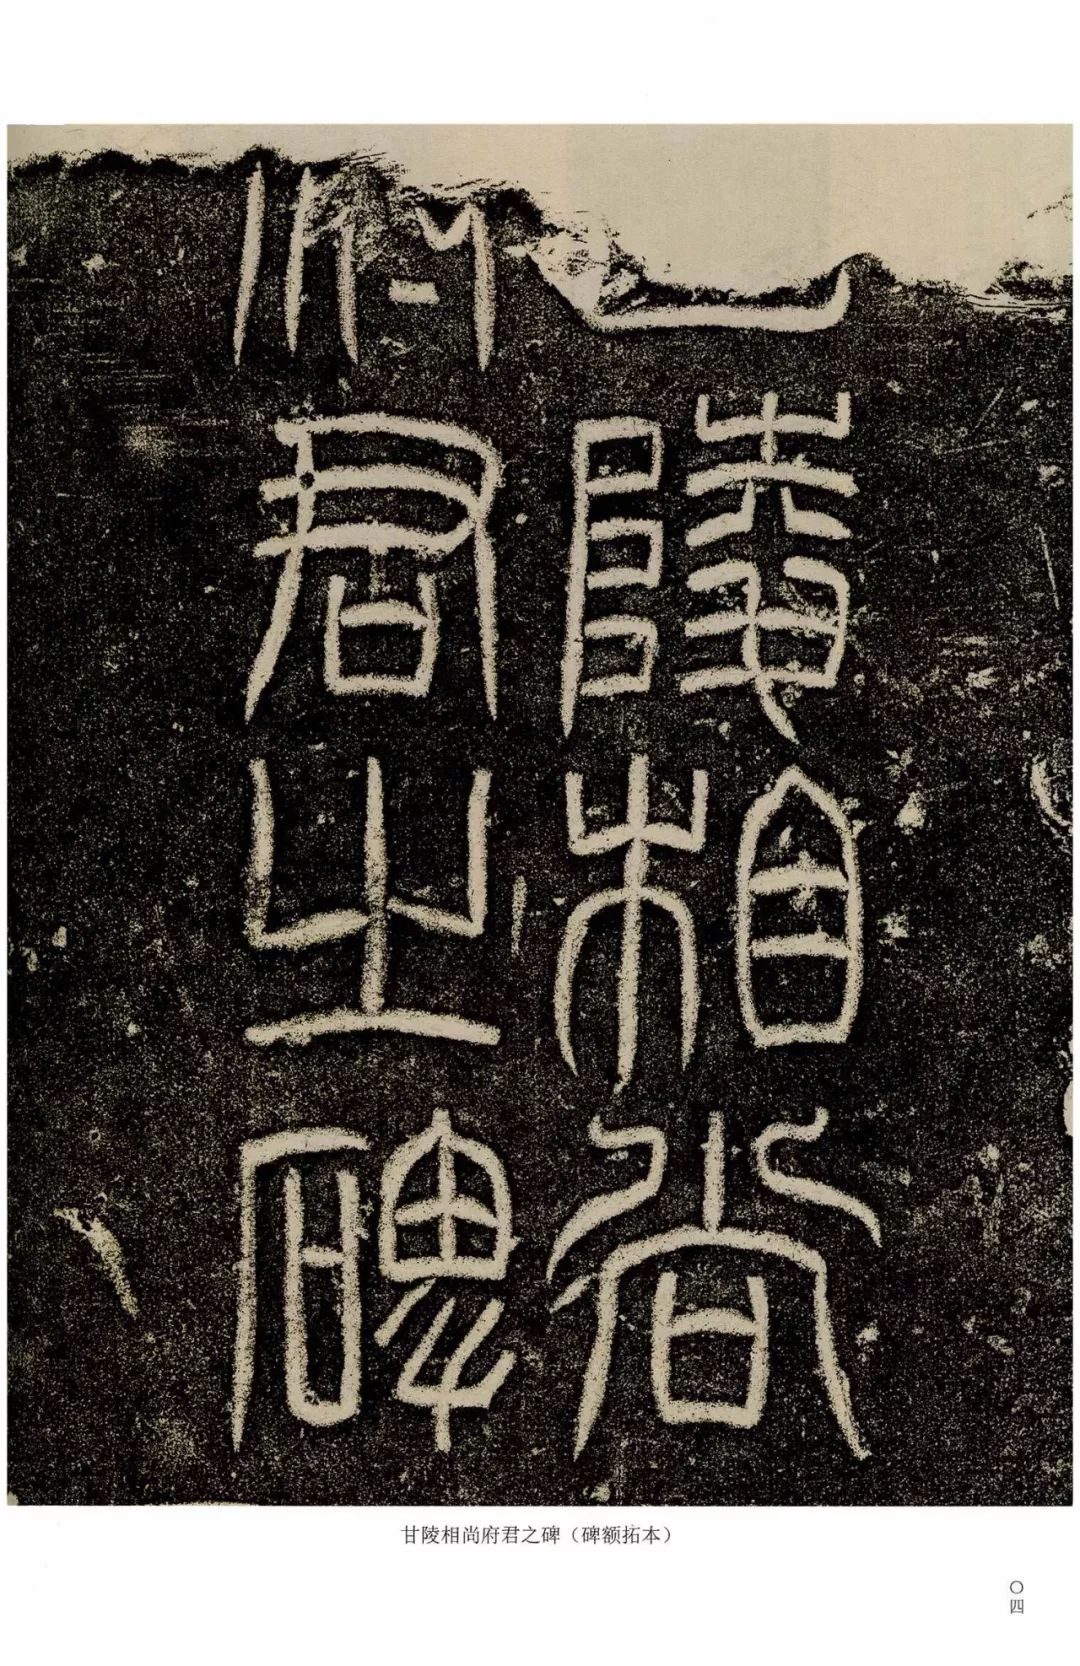 甘陵相尚
府君之碑
甘陵相尚府君之碑（碑额拓本）
〇四